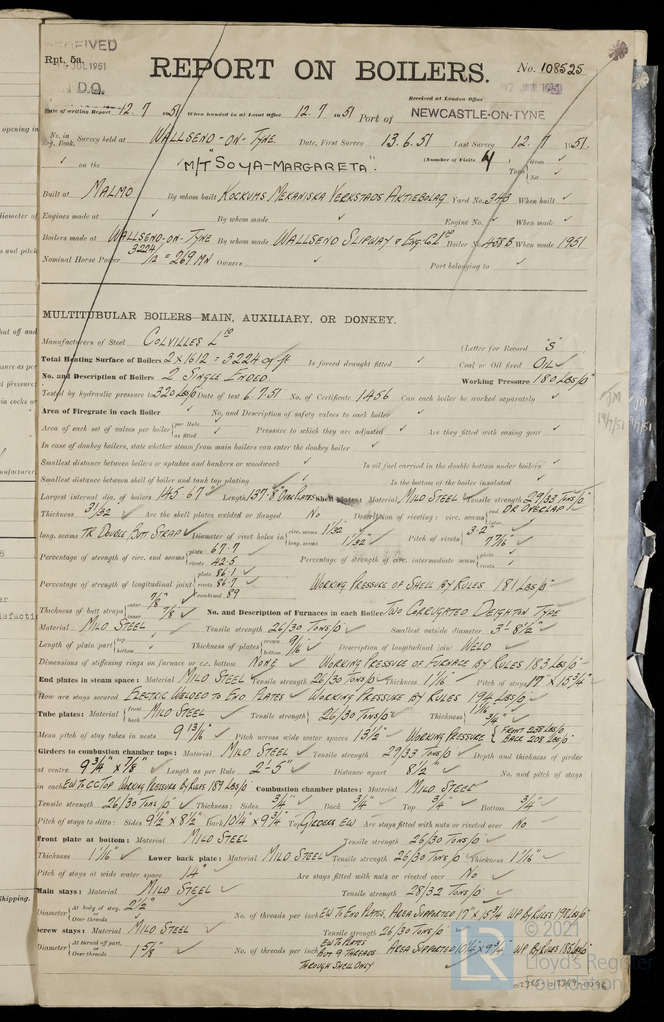 RECEIVED
JUL 1951
D.O.
Rpt. 5a.
REPORT ON BOILERS.
No. 108525
Received at London Office
Date of writing Report 12. 7 1951 When handed in at Local Office 12. 7 1951 Port of NEWCASTLE-ON-TYNE
No. in Reg. Book. Survey held at WALLSEND-ON-TYNE Date, First Survey 13.6.51 Last Survey 12. 7 1951.
on the "M/T "SOYA-MARGARETA". (Number of Visits 4) Gross Tons Net
Built at MALMO By whom built KOCKUMS MEKANISKA VERKSTADS AKTIEBOLAG Yard No. 343 When built
Engines made at By whom made Engine No. When made
Boilers made at WALLSEND-ON-TYNE By whom made WALLSEND SLIPWAY & ENG. Co Ltd Boiler No. 4386 When made 1951
Nominal Horse Power 3224/12 = 269 MN Owners Port belonging to
MULTITUBULAR BOILERS—MAIN, AUXILIARY, OR DONKEY.
Manufacturers of Steel COLVILLES Ltd (Letter for Record S)
Total Heating Surface of Boilers 2 x 1612 = 3224 sq ft Is forced draught fitted Coal or Oil fired OIL
No. and Description of Boilers 2 SINGLE ENDED Working Pressure 180 LBS/□"
Tested by hydraulic pressure to 320 LBS/□" Date of test 6.7.51 No. of Certificate 1456 Can each boiler be worked separately
Area of Firegrate in each Boiler No. and Description of safety valves to each boiler
Area of each set of valves per boiler per Rule as fitted Pressure to which they are adjusted Are they fitted with easing gear
In case of donkey boilers, state whether steam from main boilers can enter the donkey boiler
Smallest distance between boilers or uptakes and bunkers or woodwork Is oil fuel carried in the double bottom under boilers
Smallest distance between shell of boiler and tank top plating Is the bottom of the boiler insulated
Largest internal dia. of boilers 145.67 Length 137.8" OVER PLATES Shell plates: Material MILD STEEL Tensile strength 29/33 TONS/□"
Thickness 31/32 Are the shell plates welded or flanged No Description of riveting: circ. seams end DR OVERLAP
long. seams TR. DOUBLE BUTT STRAP Diameter of rivet holes in circ. seams 1 1/32 long. seams 1 1/32" Pitch of rivets 3.2" 7 7/16"
Percentage of strength of circ. end seams plate 67.7 rivets 42.5 Percentage of strength of circ. intermediate seam plate rivets
Percentage of strength of longitudinal joint plate 86.1 rivets 86.7 combined 89 WORKING PRESSURE OF SHELL BY RULES 181 LBS/□"
Thickness of butt straps outer 7/8" inner 7/8" No. and Description of Furnaces in each Boiler TWO CORRUGATED DEIGHTON TYPE
Material MILD STEEL Tensile strength 26/30 TONS/□" Smallest outside diameter 3'-8 1/2"
Length of plain part top bottom Thickness of plates crown bottom 9/16" Description of longitudinal joint WELD
Dimensions of stiffening rings on furnace or c.c. bottom NONE WORKING PRESSURE OF FURNACE BY RULES 183 LBS/□"
End plates in steam space: Material MILD STEEL Tensile strength 26/30 TONS/□" Thickness 1 1/16" Pitch of stays 17" x 15 3/4"
How are stays secured ELECTRIC WELDED TO END PLATES WORKING PRESSURE BY RULES 194 LBS/□"
Tube plates: Material front back MILD STEEL Tensile strength 26/30 TONS/□" Thickness 1 1/16" 3/4"
Mean pitch of stay tubes in nests 9 13/16" Pitch across wide water spaces 13 1/2" WORKING PRESSURE FRONT 238 LBS/□" BACK 208 LBS/□"
Girders to combustion chamber tops: Material MILD STEEL Tensile strength 29/33 TONS/□" Depth and thickness of girder
at centre 9 3/4" x 7/8" Length as per Rule 2'-5" Distance apart 8 1/2" No. and pitch of stays
in each EW TO CC TOP WORKING PRESSURE BY RULES 189 LBS/□" Combustion chamber plates: Material MILD STEEL
Tensile strength 26/30 TONS/□" Thickness: Sides 3/4" Back 3/4" Top 3/4" Bottom 3/4"
Pitch of stays to ditto: Sides 9 1/2" x 8 1/2" Back 10 1/4" x 9 3/4" Top GIRDERS EW Are stays fitted with nuts or riveted over No
Front plate at bottom: Material MILD STEEL Tensile strength 26/30 TONS/□"
Thickness 1 1/16" Lower back plate: Material MILD STEEL Tensile strength 26/30 TONS/□" Thickness 1 1/16"
Pitch of stays at wide water space 14" Are stays fitted with nuts or riveted over No
Main stays: Material MILD STEEL Tensile strength 28/32 TONS/□"
Diameter At body of stay, Over threads 2 1/2" No. of threads per inch EW TO END PLATES, AREA SUPPORTED 17" x 15 3/4" WP BY RULES
Screw stays: Material MILD STEEL Tensile strength 26/30 TONS/□"
Diameter At turned off part, Over threads 1 5/8" No. of threads per inch EW TO PLATES BUT 9 THREADS THROUGH SHELL ONLY AREA SUPPORTED 10 1/4" x 9 3/4" WP BY RULES
© 2021
Lloyd's Register
Foundation